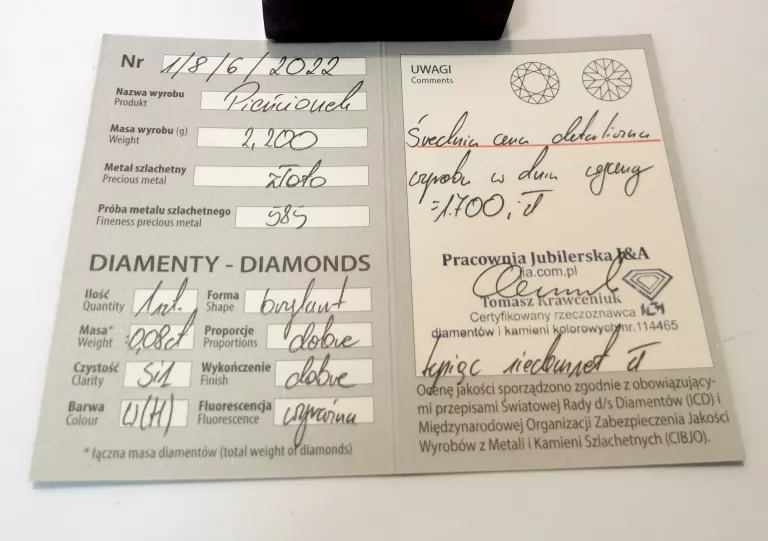 Nr 1/8/6/2022
Nazwa wyrobu Pierścionek
Produkt
Masa wyrobu (g) 2,200
Weight
Metal szlachetny złoto
Precious metal
Próba metalu szlachetnego 585
Fineness precious metal
DIAMENTY - DIAMONDS
Ilość 1szt. Forma brylant
Quantity Shape
Masa* 0,08ct Proporcje dobre
Weight Proportions
Czystość Si1 Wykończenie dobre
Clarity Finish
Barwa W(H) Fluorescencja
Colour Fluorescence
* łączna masa diamentów (total weight of diamonds)
UWAGI
Comments
Średnia cena detaliczna
wyrobu w dniu oceny
=1.700,- zł
Pracownia Jubilerska J&A
ja.com.pl
Tomasz Krawceniuk
Certyfikowany rzeczoznawca
diamentów i kamieni kolorowych nr. 114465
tysiąc siedemset zł
Ocenę jakości sporządzono zgodnie z obowiązujący-
mi przepisami Światowej Rady d/s Diamentów (ICD) i
Międzynarodowej Organizacji Zabezpieczenia Jakości
Wyrobów z Metali i Kamieni Szlachetnych (CIBJO).